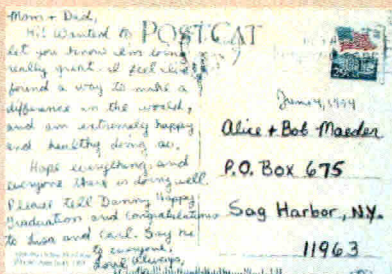 Mom + Dad,
Hi! Wanted to
let you know I'm doing
really great. I feel like I
found a way to make a
difference in the world,
and am extremely happy
and healthy doing so.
Hope everything and
everyone there is doing well.
Please tell Danny Happy
Graduation and congratulations
to Lisa and Carl. Say hi
to everyone.
Love Always,
POSTCAT
29
June 4, 1994
Alice + Bob Maeder
P.O. Box 675
Sag Harbor, NY.
11963